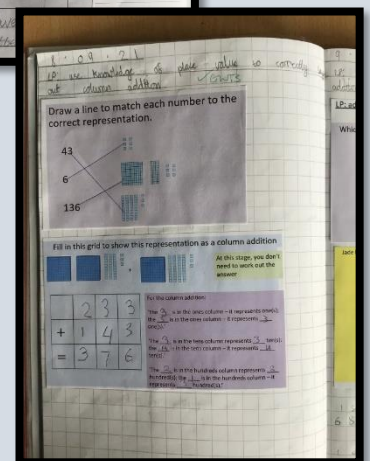 LP: use knowledge of place value to correctly
out column addition
Draw a line to match each number to the
correct representation.
43
6
136
Fill in this grid to show this representation as a column addition
At this stage, you don't
need to work out the
answer
2 3 3
+ 1 4 3
= 3 7 6
For the column addition:
"the 3 is in the ones column – it represents
the 3 is in the ones column – it represents 3
one(s)."
"the 3 is in the tens column represents 3 ten(s);
the is in the tens column – it represents
ten(s)."
"the 2 is in the hundreds column represents 2
hundred(s); the 1 is in the hundreds column – it
represents hundred(s)."
LP:
Whic
Jade